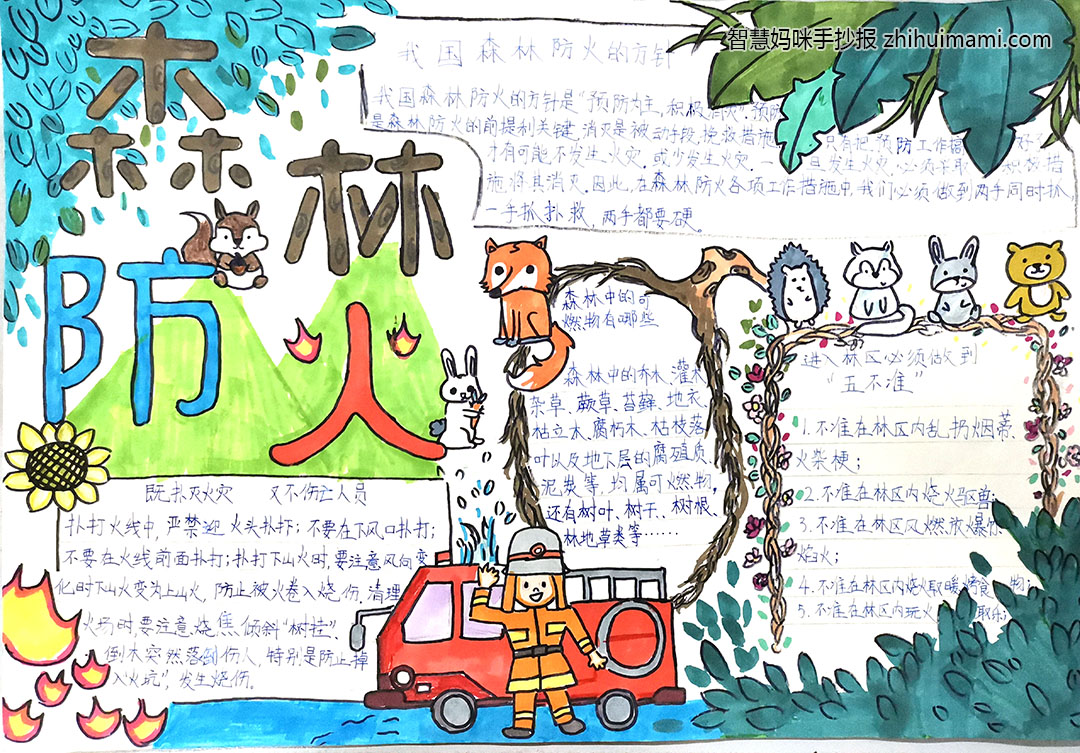 智慧妈咪手抄报 zhihuimami.com
森林
防火
我国森林防火的方针
我国森林防火的方针是“预防为主,积极消灭”.预防
是森林防火的前提和关键,消灭是被动手段,挽救措施 只有把预防工作搞 好了
才有可能不发生火灾,或少发生火灾.一 旦发生火灾,必须采取 积极措
施将其消灭.因此,在森林防火各项工作措施中,我们必须做到两手同时抓
一手抓扑救,两手都要硬。
森林中的可
燃物有哪些
森林中的乔木、灌木
杂草、蕨草、苔藓、地衣
枯立木、腐朽木、枯枝落
叶以及地下层的腐殖质、
泥炭等,均属可燃物,
还有树叶、树干、树根、
林地草类等……
进入林区必须做到
“五不准”
1.不准在林区内乱扔烟蒂、
火柴梗;
2.不准在林区内烧火驱兽;
3.不准在林区内燃放爆
焰火;
4.不准在林区内烧火取暖烤食 物;
5.不准在林区内玩火 取乐;
既扑灭火灾 又不伤亡人员
扑打火线中,严禁迎火头扑打;不要在下风口扑打;
不要在火线前面扑打;扑打下山火时,要注意风向变
化时下山火变为上山火,防止被火卷入烧伤.清理
火场时,要注意烧焦倾斜“树挂”、
倒木突然落倒伤人,特别是防止掉
入“火坑”,发生烧伤。